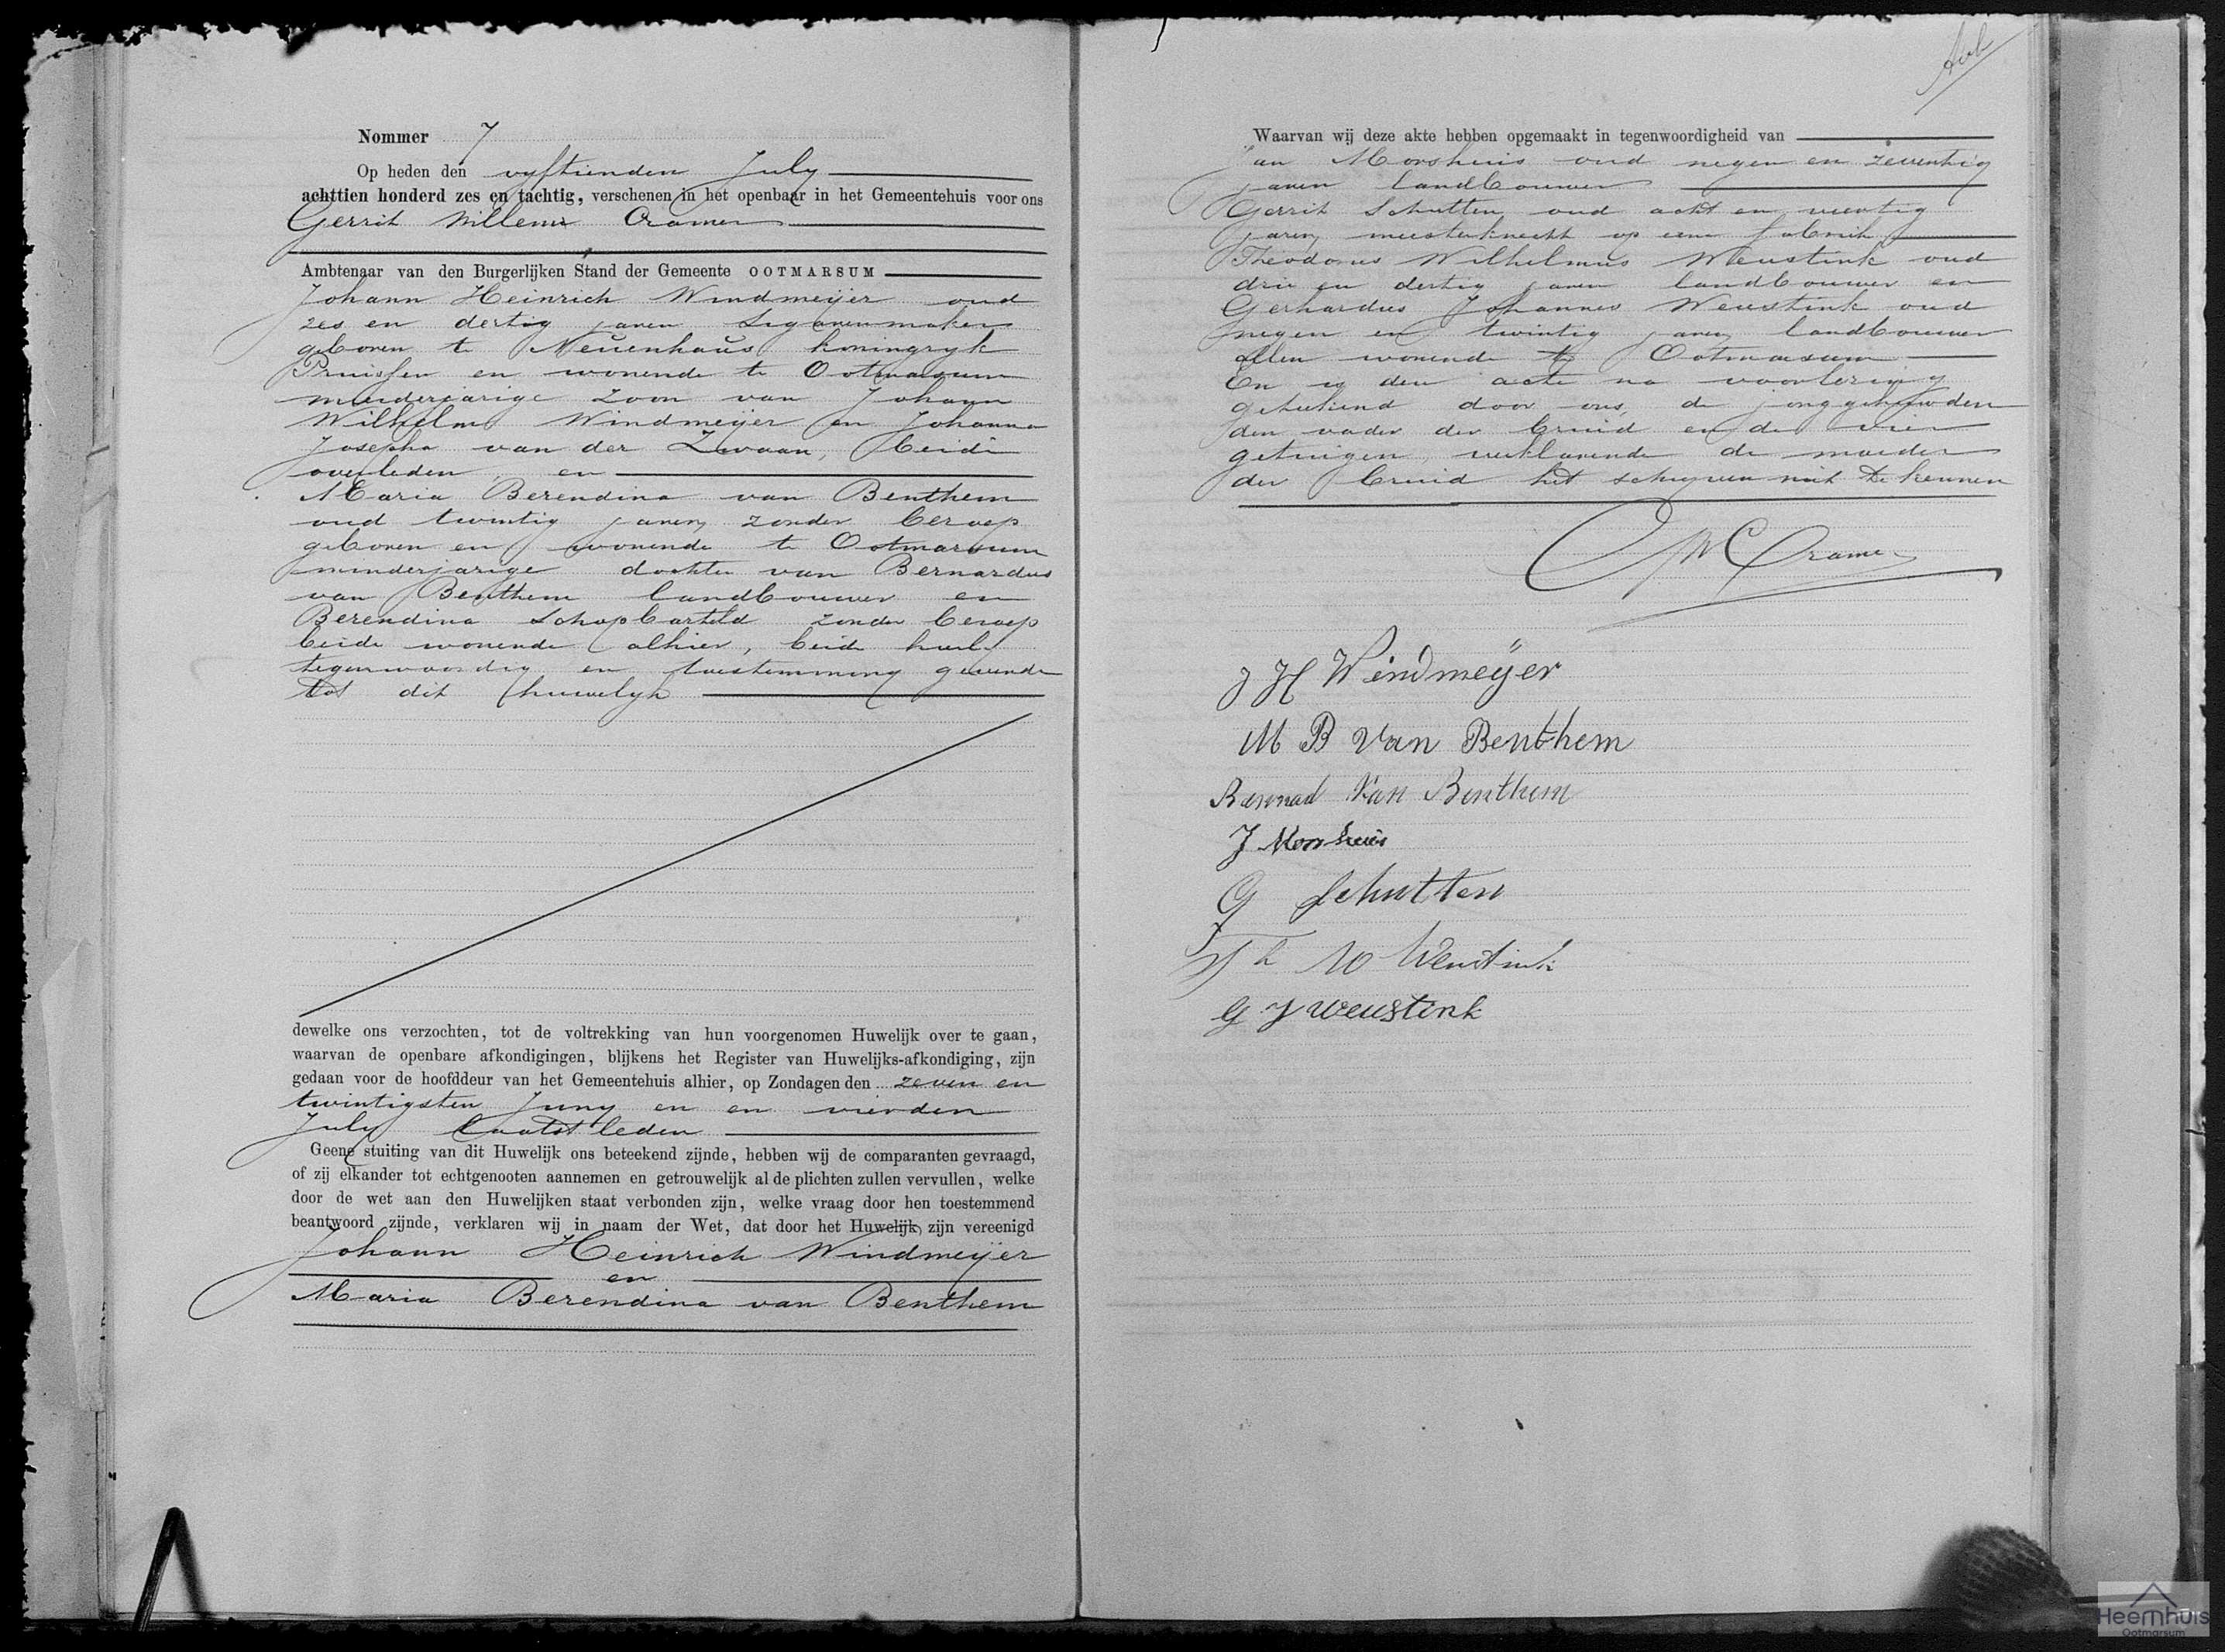 Nommer 7
Op heden den vyftienden July
achttien honderd zes en tachtig, verschenen in het openbaar in het Gemeentehuis voor ons
Gerrit Willem Cramer
Ambtenaar van den Burgerlijken Stand der Gemeente OOTMARSUM
Johann Heinrich Windmeijer oud
zes en dertig jaren Sigarenmaker
geboren te Neuenhaus koningryk
Pruissen en wonende te Ootmarsum
meerderjarige zoon van Johann
Wilhelm Windmeijer en Johanna
Josepha van der Zwaan, beide
overleden, en
Maria Berendina van Benthem
oud twintig jaren, zonder beroep
geboren en wonende te Ootmarsum
minderjarige dochter van Bernardus
van Benthem landbouwer en
Berendina Schopbarteld zonder beroep
beide wonende alhier, beide hierby
tegenwoordig en toestemming gevende
tot dit huwelyk
dewelke ons verzochten, tot de voltrekking van hun voorgenomen Huwelijk over te gaan,
waarvan de openbare afkondigingen, blijkens het Register van Huwelijks-afkondiging, zijn
gedaan voor de hoofddeur van het Gemeentehuis alhier, op Zondagen den zeven en
twintigsten Juny en en vierden
July laatstleden
Geene stuiting van dit Huwelijk ons beteekend zijnde, hebben wij de comparanten gevraagd,
of zij elkander tot echtgenooten aannemen en getrouwelijk al de plichten zullen vervullen, welke
door de wet aan den Huwelijken staat verbonden zijn, welke vraag door hen toestemmend
beantwoord zijnde, verklaren wij in naam der Wet, dat door het Huwelijk zijn vereenigd
Johann Heinrich Windmeijer
en
Maria Berendina van Benthem
Waarvan wij deze akte hebben opgemaakt in tegenwoordigheid van
Jan Morshuis oud negen en zeventig
jaren landbouwer
Gerrit Schutten oud acht en veertig
jaren, meesterknecht op eene fabriek
Theodorus Wilhelmus Weustink oud
drie en dertig jaren landbouwer en
Gerhardus Johannes Weustink oud
negen en twintig jaren, landbouwer
allen wonende te Ootmarsum
En is deze acte na voorlezing
geteekend door ons, de jonggehuwden
den vader der bruid en de vier
getuigen, verklarende de moeder
der bruid het schryven niet te kennen
GW Cramer
J H Windmeijer
M B Van Benthem
Bernad Van Benthem
J Morshuis
G Schutten
Th W Weustink
G J Weustink
Heemhuis
Ootmarsum